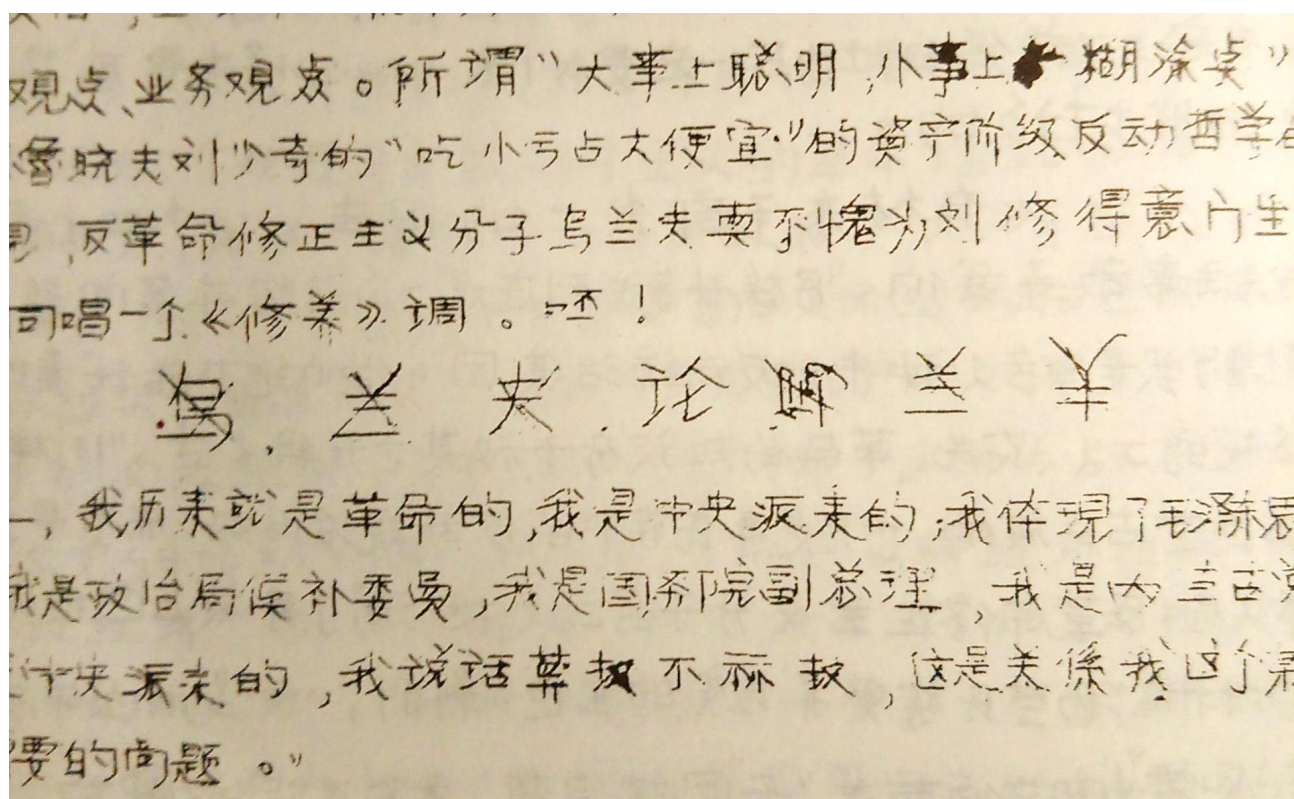 观点、业务观点。所谓"大事上聪明,小事上糊涂点"
鲁晓夫刘少奇的"吃小亏占大便宜"的资产阶级反动哲学
,反革命修正主义分子乌兰夫要不愧为刘修得意门生
同唱一个《修养》调。呸!
乌兰夫论乌兰夫
一,我历来就是革命的,我是中央派来的,我体现了毛泽东思
我是政治局候补委员,我是国务院副总理,我是内蒙古党
中央派来的,我说话算数不算数,这是关系我这个
要的问题。"